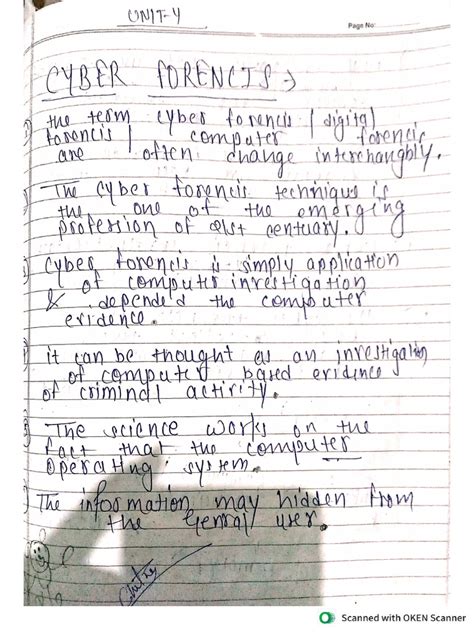 UNIT-4
Page No:
CYBER FORENCIS →
the term cyber forencis / digital
forencis / computer forencis
are often change interchangbly.
The cyber forencis technique is
the one of the emerging
profession of 21st centuary.
cyber forencis is simply application
of computer investigation
& depended the computer
evidence.
it can be thought as an investigation
of computer based evidence
of criminal activity.
The science works on the
fact that the computer
operating system.
The information may hidden from
the Genral user.
Scanned with OKEN Scanner